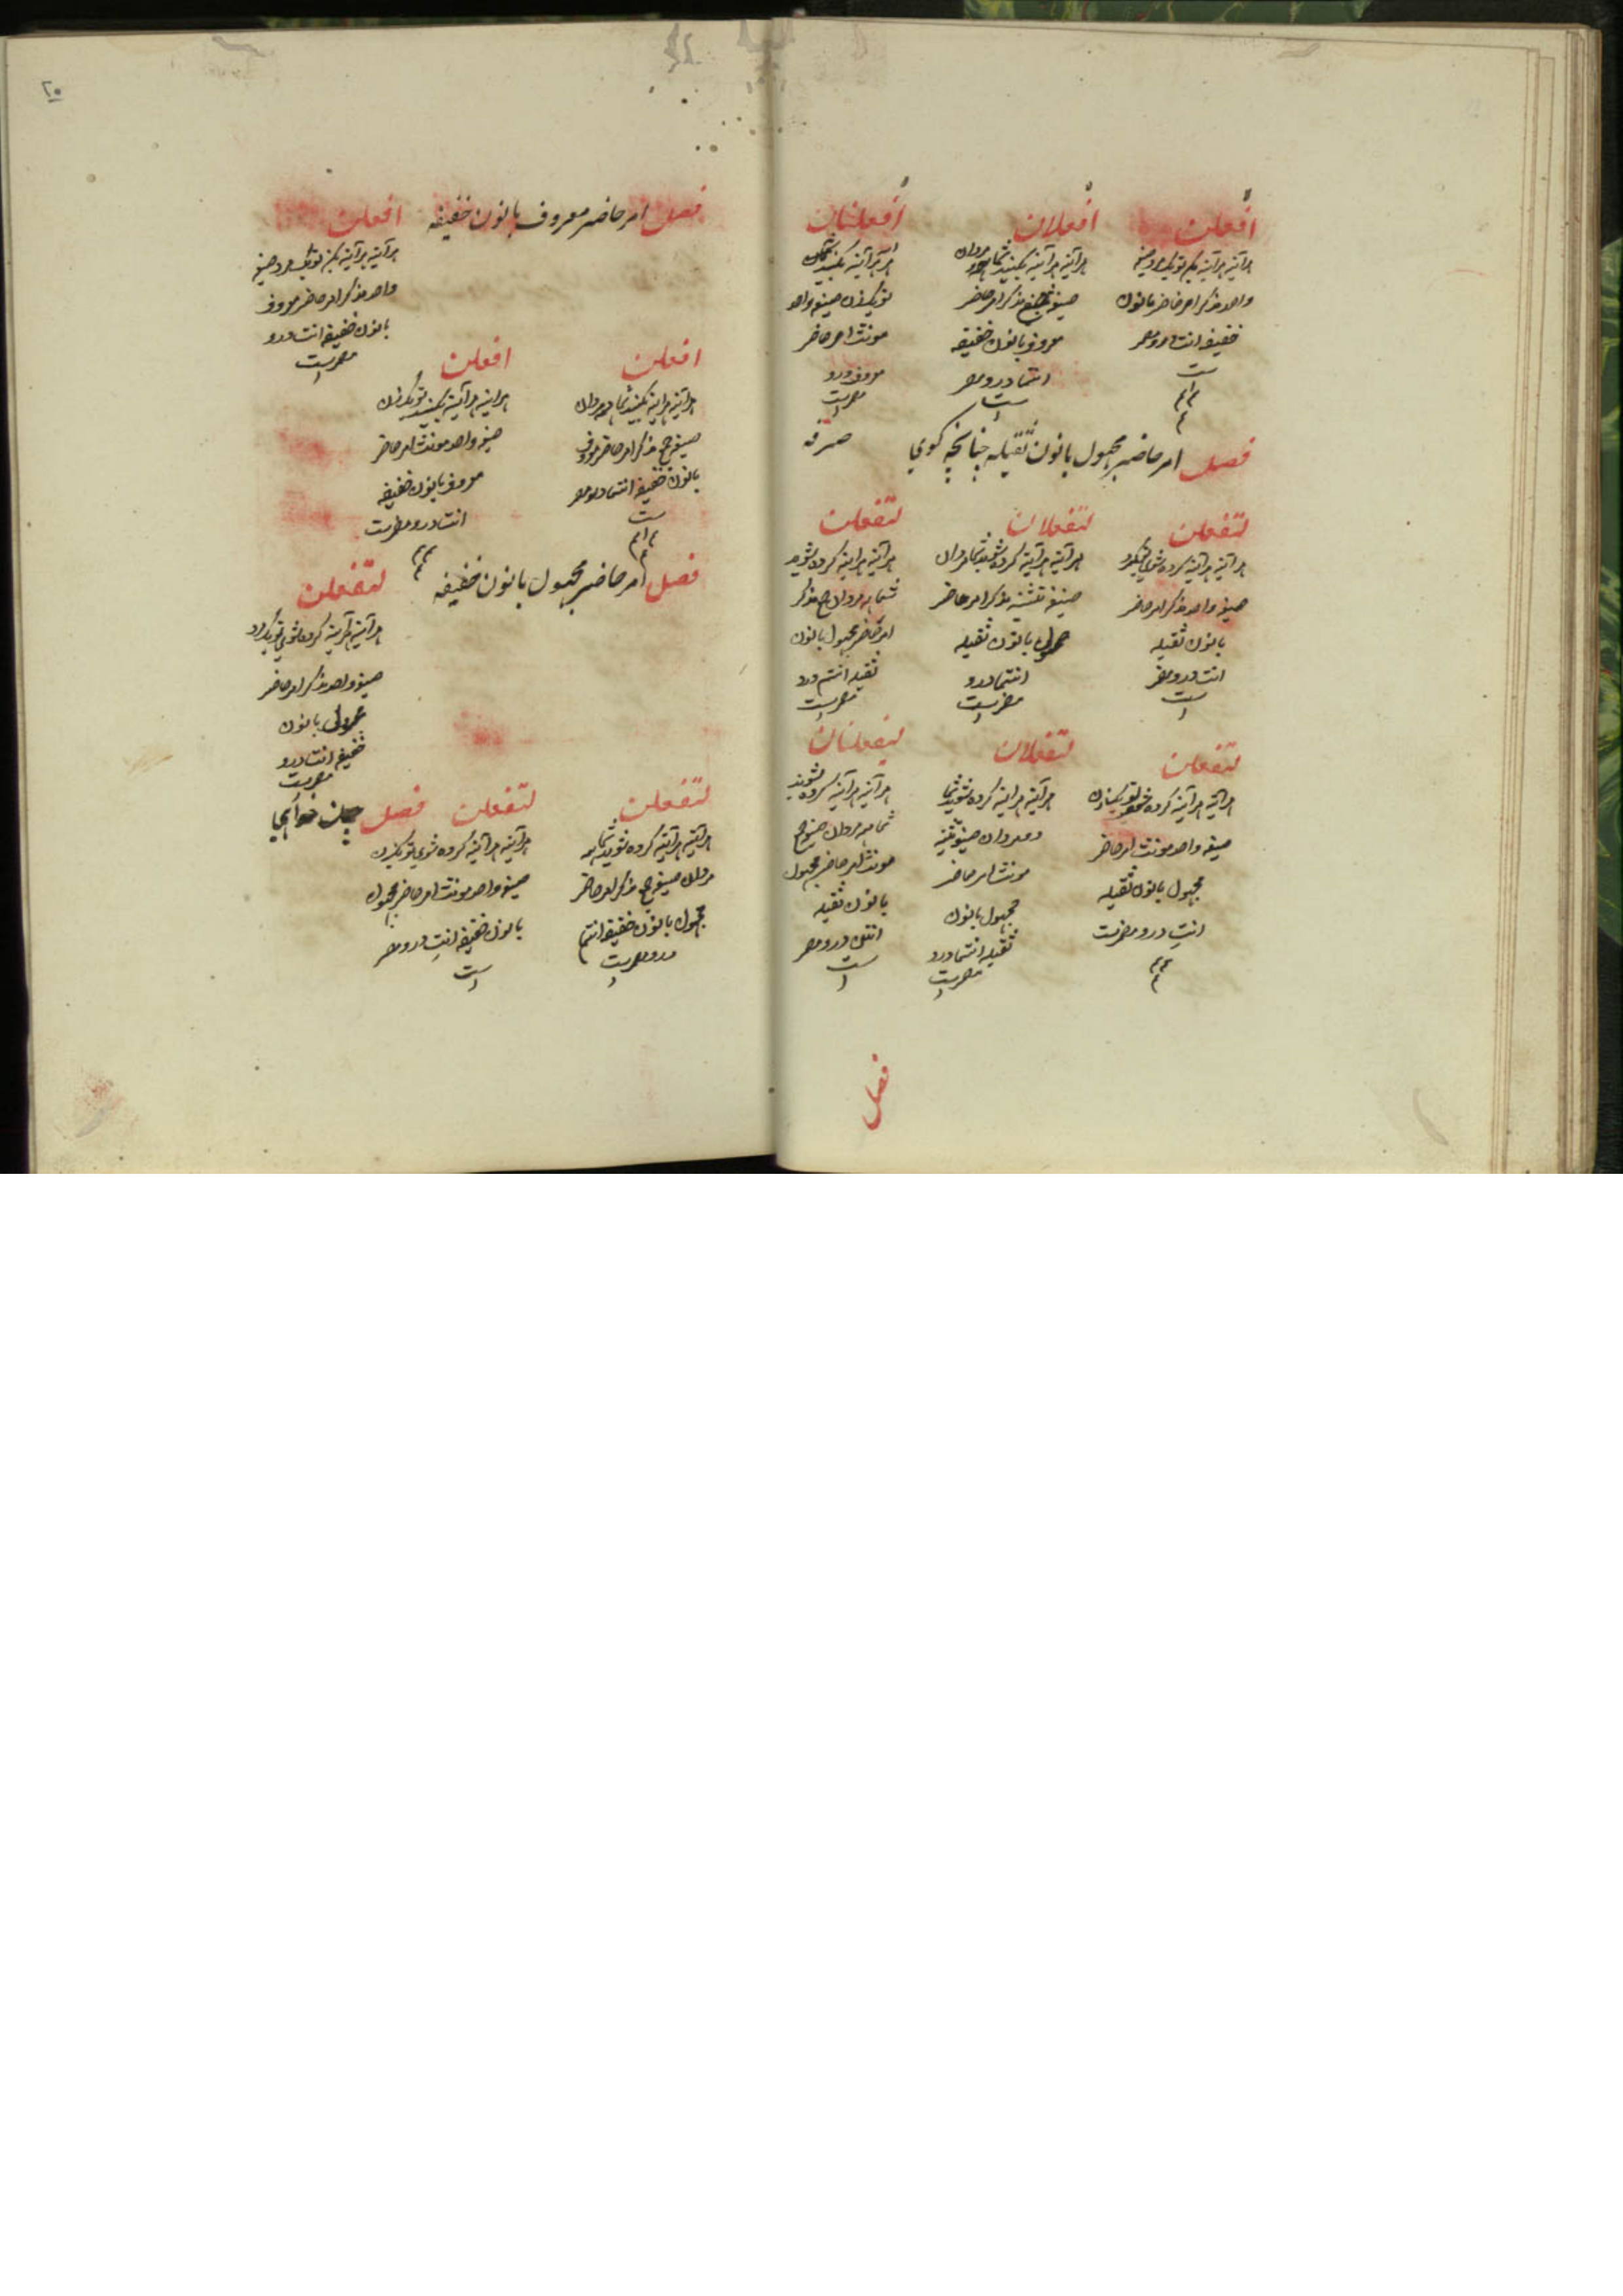 افعلن
هرآینه هرآینه بکن تو یکمرد صیغه
واحد مذکر امر حاضر بانون
خفیفه انت درو مضمر
ست
افعلان
هرآینه هرآینه بکنید شما
مردان
صیغه مذکر امر حاضر
معروف بانون خفیفه
انتما درو مضمر
ست
افعلنان
هرآینه بکنید
تو یکزن صیغه واحد
مونث امر حاضر
معروف درو
مضمرست
فصل امر حاضر مجهول بانون ثقیله چنانچه کوی
صرفه
لتفعلن
هرآینه هرآینه کرده شوی تو یکمرد
صیغه واحد مذکر امر حاضر
بانون ثقیله
انت درو مضمر
ست
لتفعلان
هرآینه هرآینه کرده شوید شما مردان
صیغه تثنیه مذکر امر حاضر
بانون ثقیله
انتما درو
مضمرست
لتفعلن
هرآینه هرآینه کرده شوید
شما همه مردان جمع مذکر
امر حاضر مجهول بانون
ثقیله انتم درو
مضمرست
لتفعلن
هرآینه هرآینه کرده شوی تو یکزن
صیغه واحد مونث امر حاضر
مجهول بانون ثقیله
انتِ درو مضمرست
لتفعلان
هرآینه هرآینه کرده شوید شما
دو مردان صیغه تثنیه
مونث امر حاضر
مجهول بانون
ثقیله انتما درو
مضمرست
لتفعلنان
هرآینه هرآینه کرده شوید
شما همه مردان صیغه جمع
مونث امر حاضر مجهول
بانون ثقیله
انتن درو مضمر
ست
فصل
٢٠
فصل امر حاضر معروف بانون خفیفه
افعلن
هرآینه هرآینه بکن تو یکمرد صیغه
واحد مذکر امر حاضر معروف
بانون خفیفه انت درو
مضمرست
افعلن
هرآینه هرآینه بکنید شما همه مردان
صیغه جمع مذکر امر حاضر معروف
بانون خفیفه انتم درو مضمر
ست
افعلن
هرآینه هرآینه بکنید تو یکزن
صیغه واحد مونث امر حاضر
معروف بانون خفیفه
انت درو مضمرست
فصل امر حاضر مجهول بانون خفیفه
لتفعلن
هرآینه هرآینه کرده شوی تو یکمرد
صیغه واحد مذکر امر حاضر
بانون
خفیفه انت درو
مضمرست
لتفعلن
هرآینه هرآینه کرده شوید شما همه
مردان صیغه جمع مذکر امر حاضر
مجهول بانون خفیفه انتم
درو مضمرست
لتفعلن
هرآینه هرآینه کرده شوی تو یکزن
صیغه واحد مونث امر حاضر مجهول
بانون خفیفه انتِ درو مضمر
ست
فصل چون خواهی